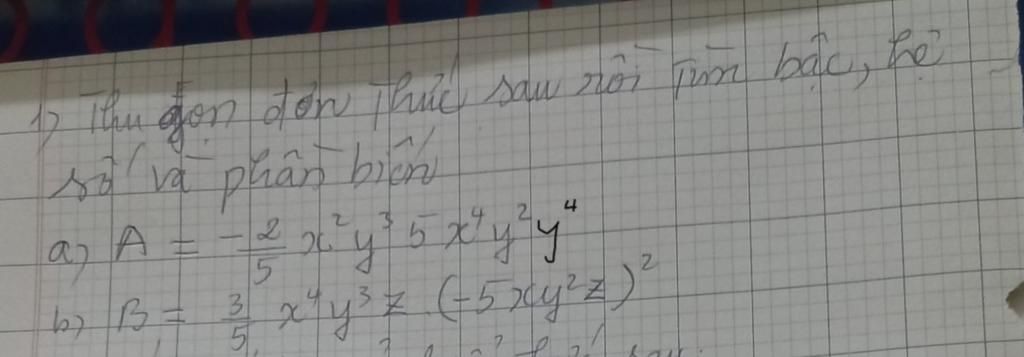 1) Thu gọn đơn thức sau rồi tìm bậc, hệ
số và phần biến
a) A = -2/5 x²y³ 5x⁴y²y⁴
b) B = 3/5 x⁴y³z (-5xy²z)²